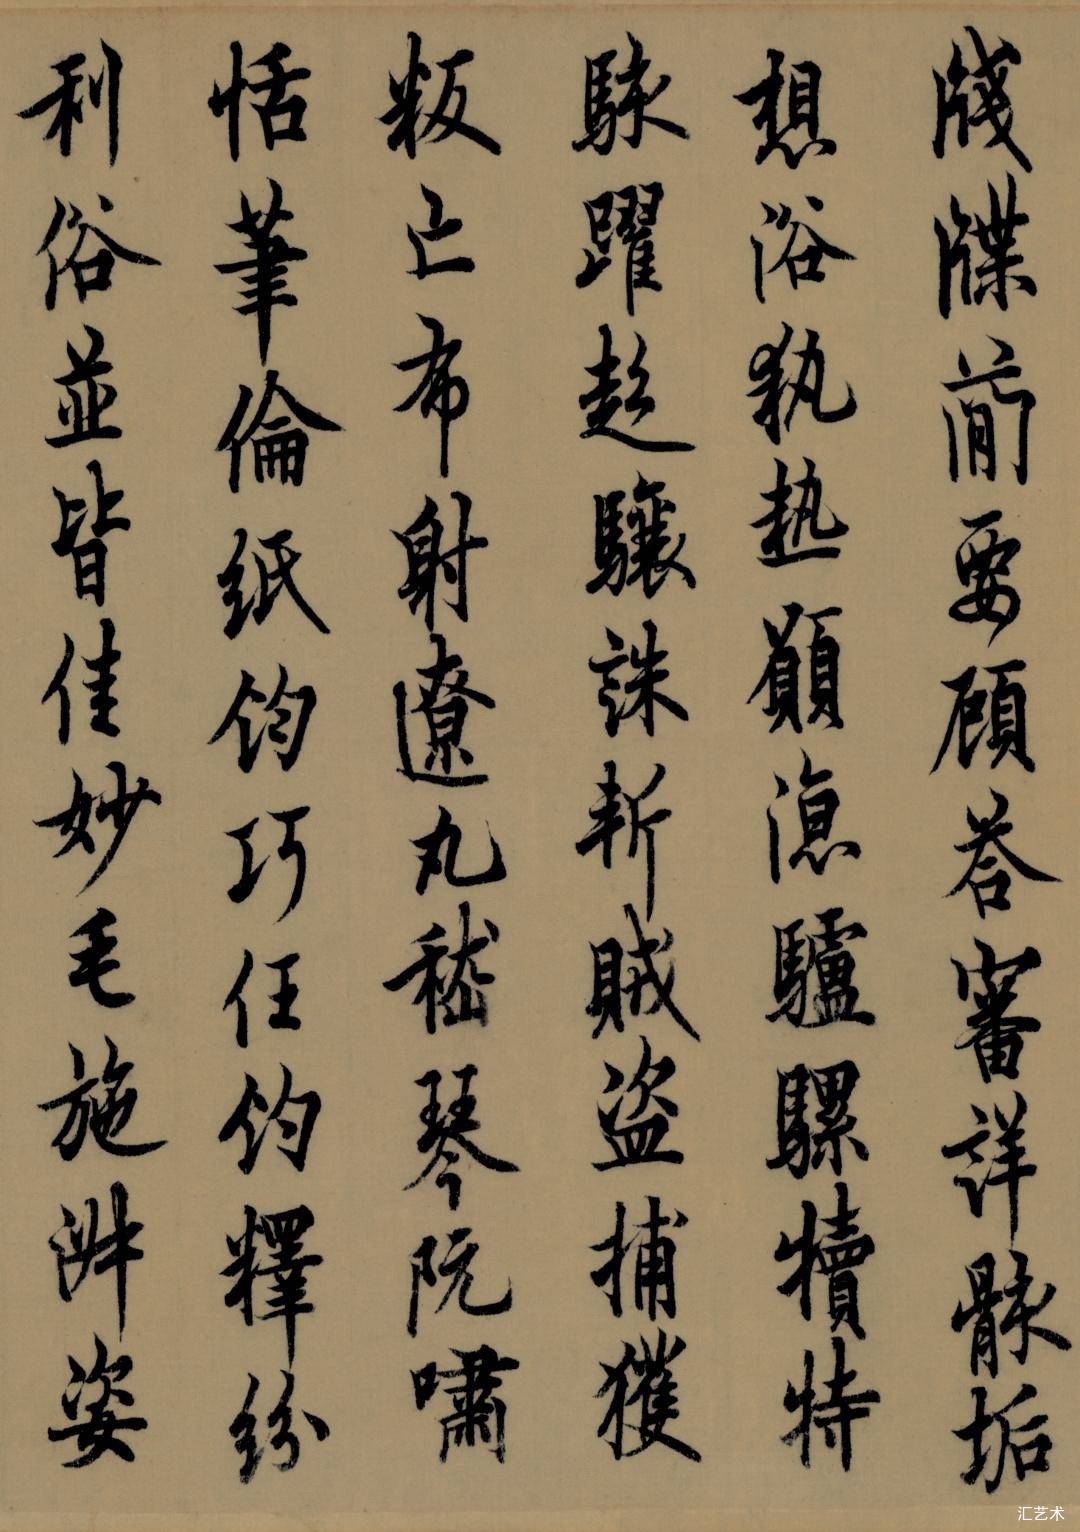 牋牒蕳要顧荅審詳骸垢
想浴執熱願涼驢騾犢特
駭躍超驤誅斬賊盜捕獲
叛亡布射遼丸嵇琴阮嘯
恬筆倫紙鈞巧任釣釋紛
利俗並皆佳妙毛施淑姿
汇艺术